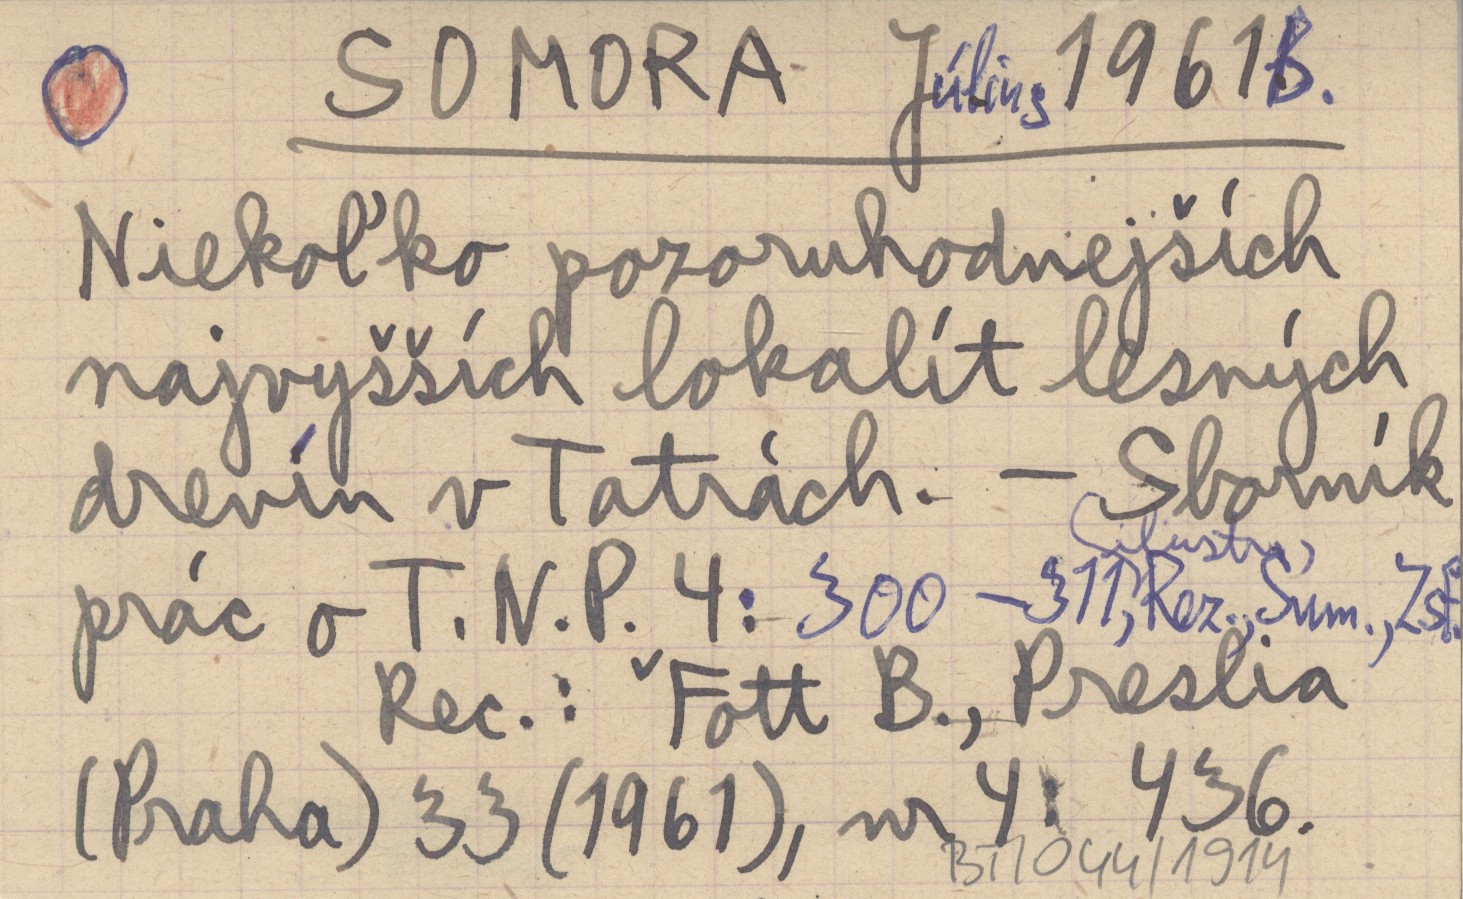 SOMORA Július 1961B.
Niekoľko pozoruhodnejších
najvyšších lokalít lesných
drevín v Tatrách. – Sborník
prác o T.N.P. 4: 300 – 311, Rez., Sum., Zsf.
Rec.: Fott B., Preslia
(Praha) 33 (1961), nr 4: 436.
BT/044/1914